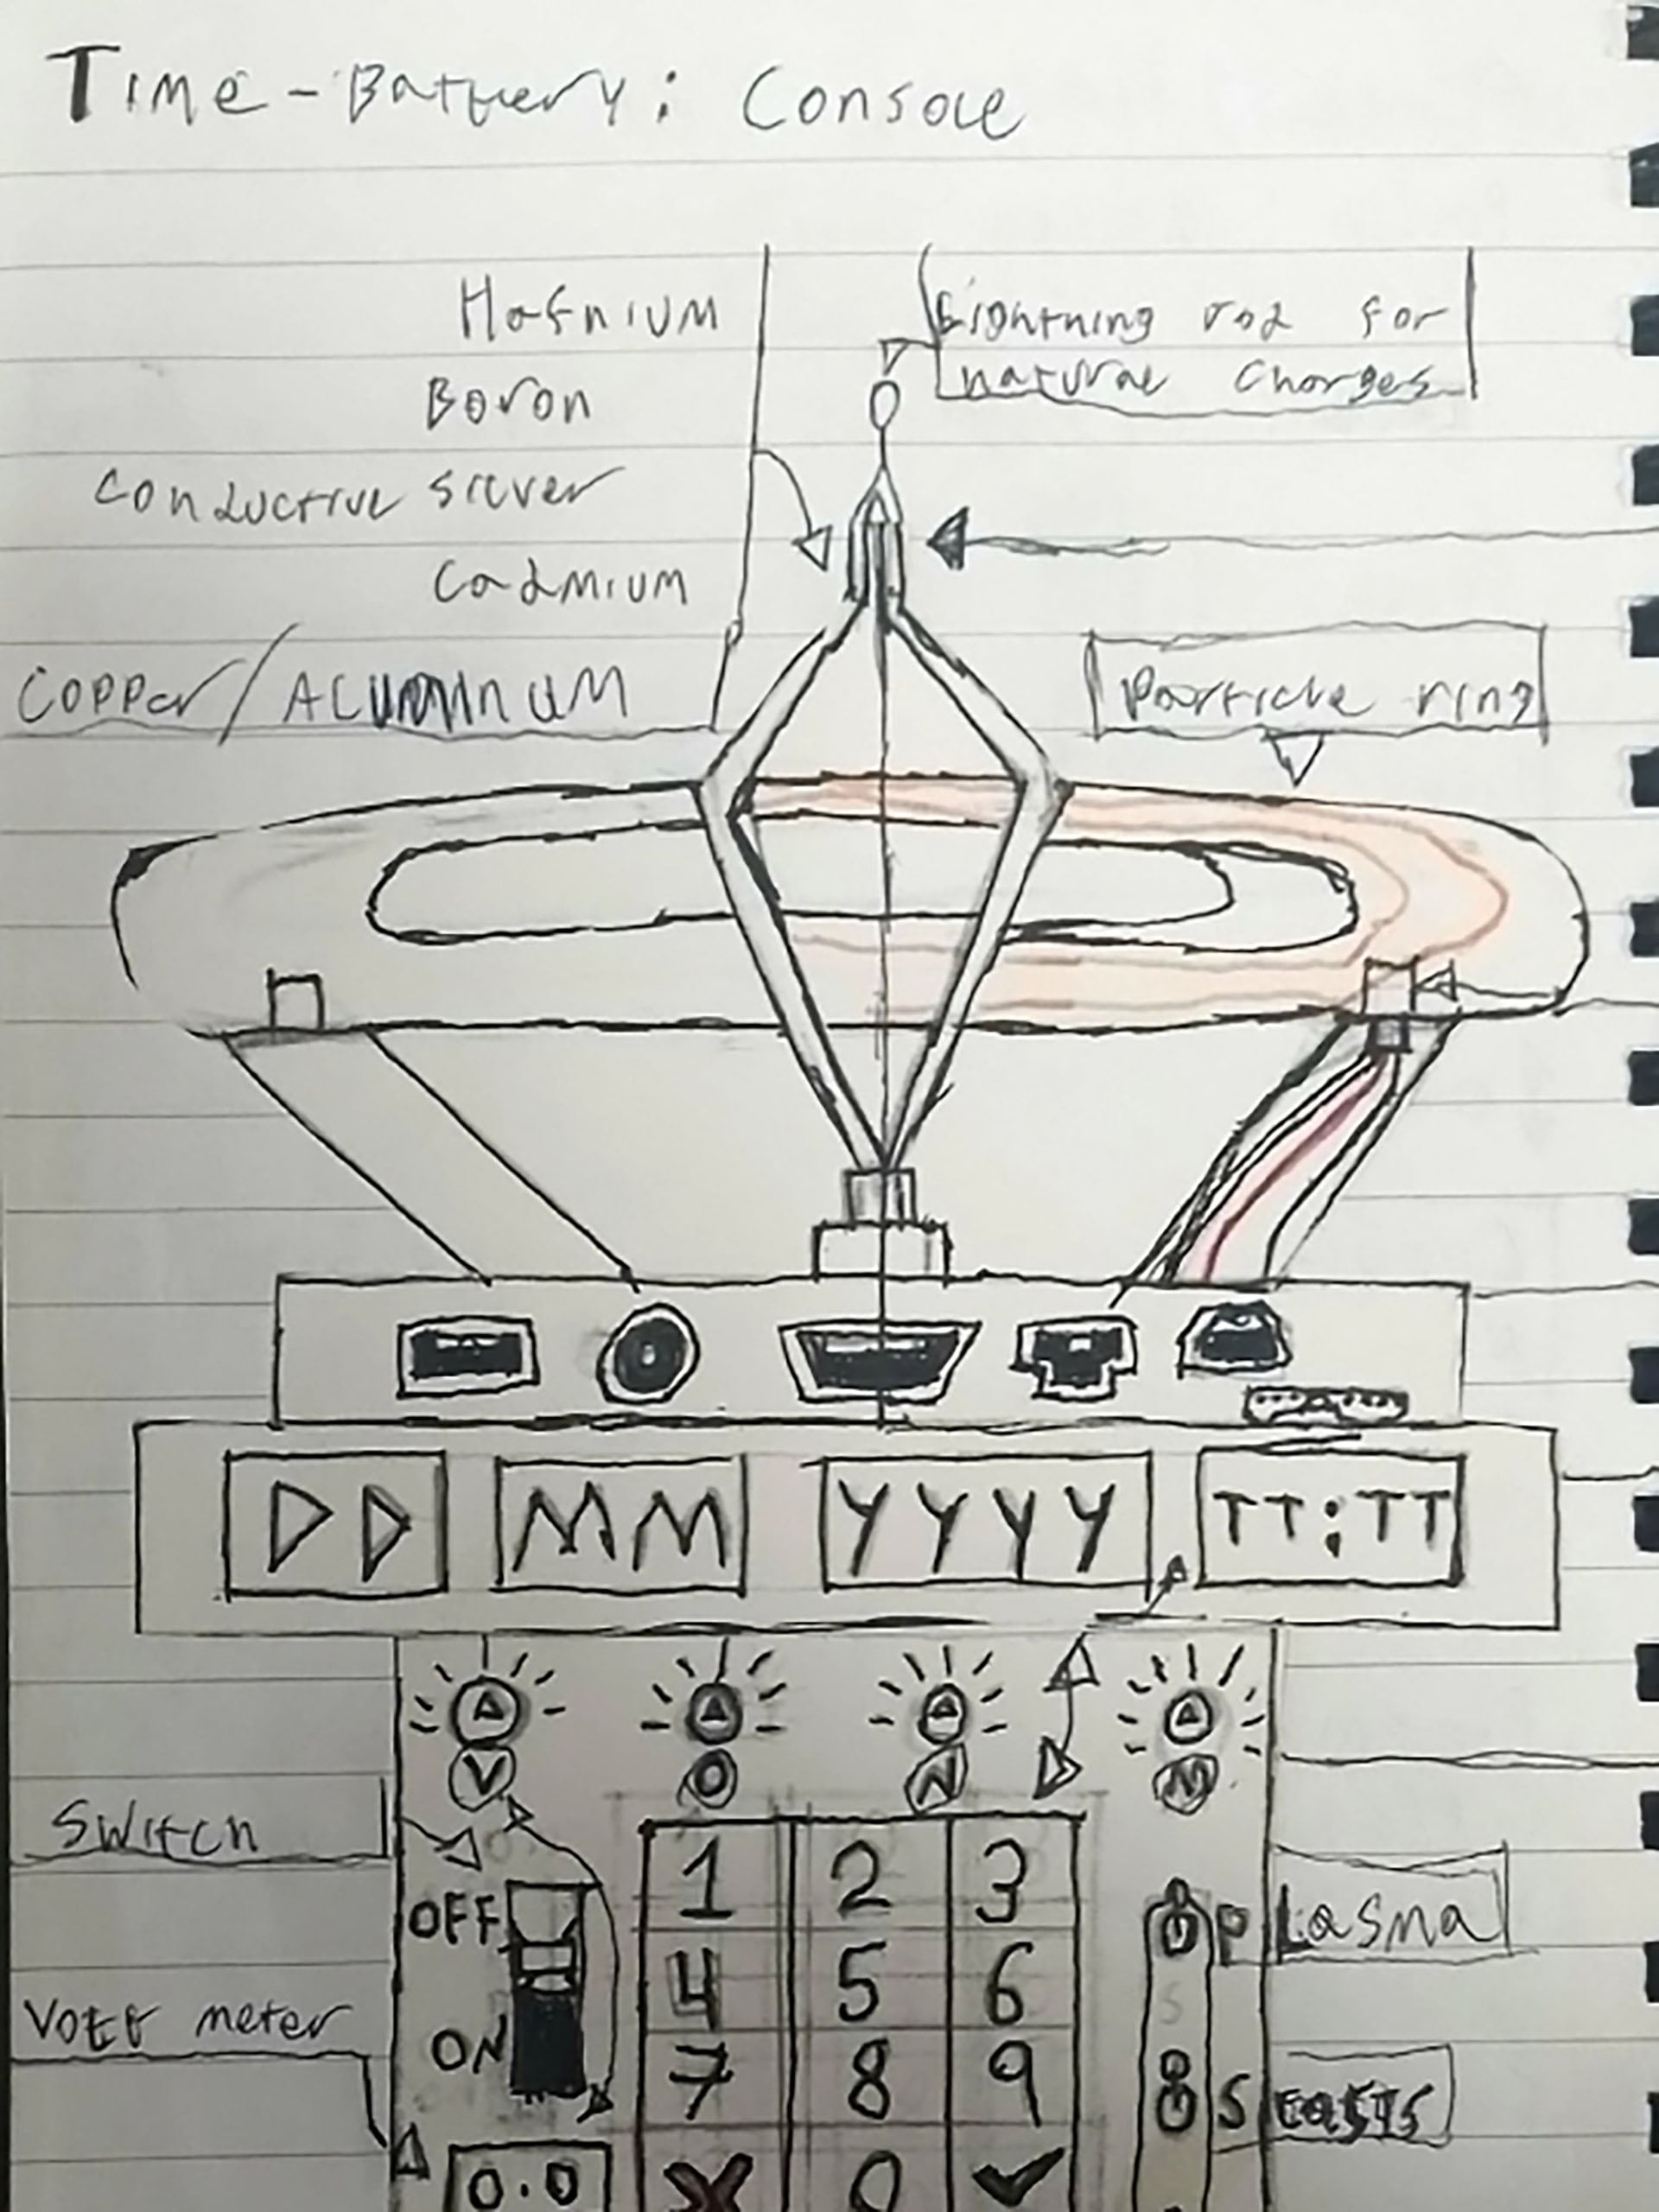 Time-Battery: Console
Hafnium
Lightning rod for
natural charges
Boron
Conductive silver
Cadmium
Copper/Aluminum
Particle ring
DD MM YYYY TT:TT
V O N M
Switch
1 2 3
OFF
Plasma
4 5 6
Volt meter
ON
7 8 9
S
0.0
X 0 ✓